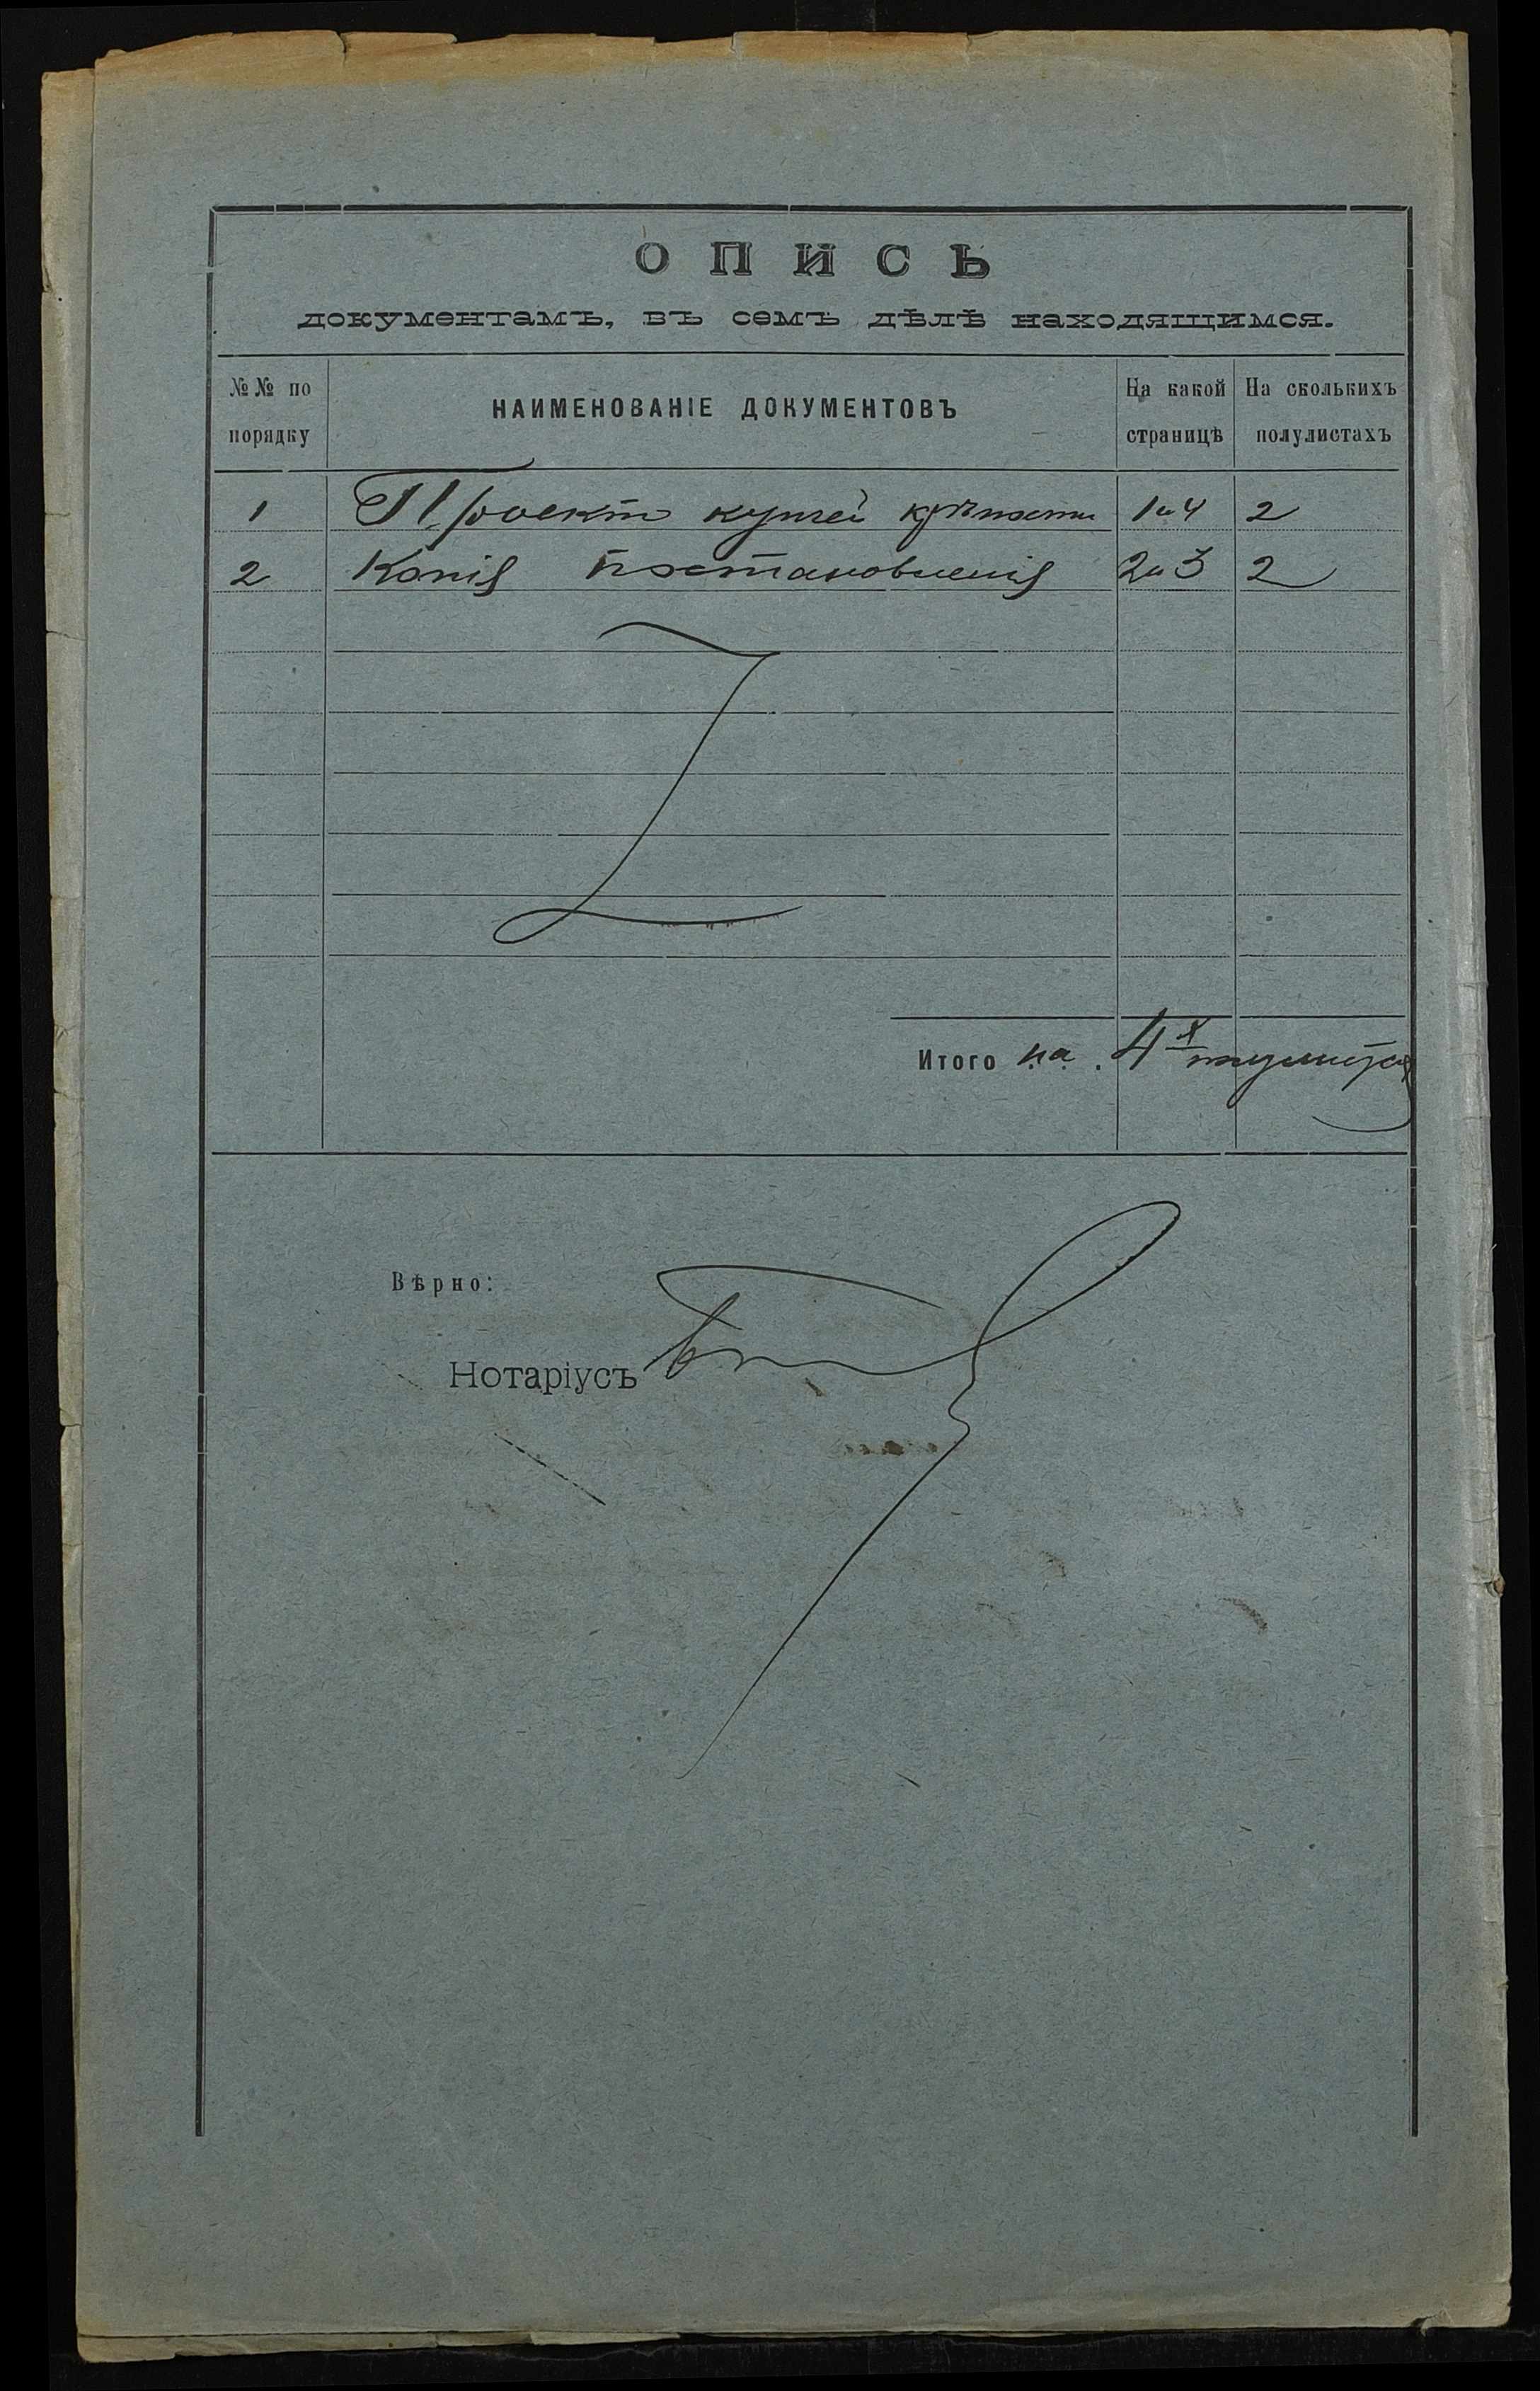 ОПИСЬ
документамъ, въ семъ дѣлѣ находящимся.
№№ по порядку
НАИМЕНОВАНІЕ ДОКУМЕНТОВЪ
На какой страницѣ
На сколькихъ полулистахъ
1 Проектъ купчей крѣпости 1 и 4 2
2 Копія постановленія 2 и 3 2
Итого на 4х полулистахъ
Вѣрно:
Нотаріусъ